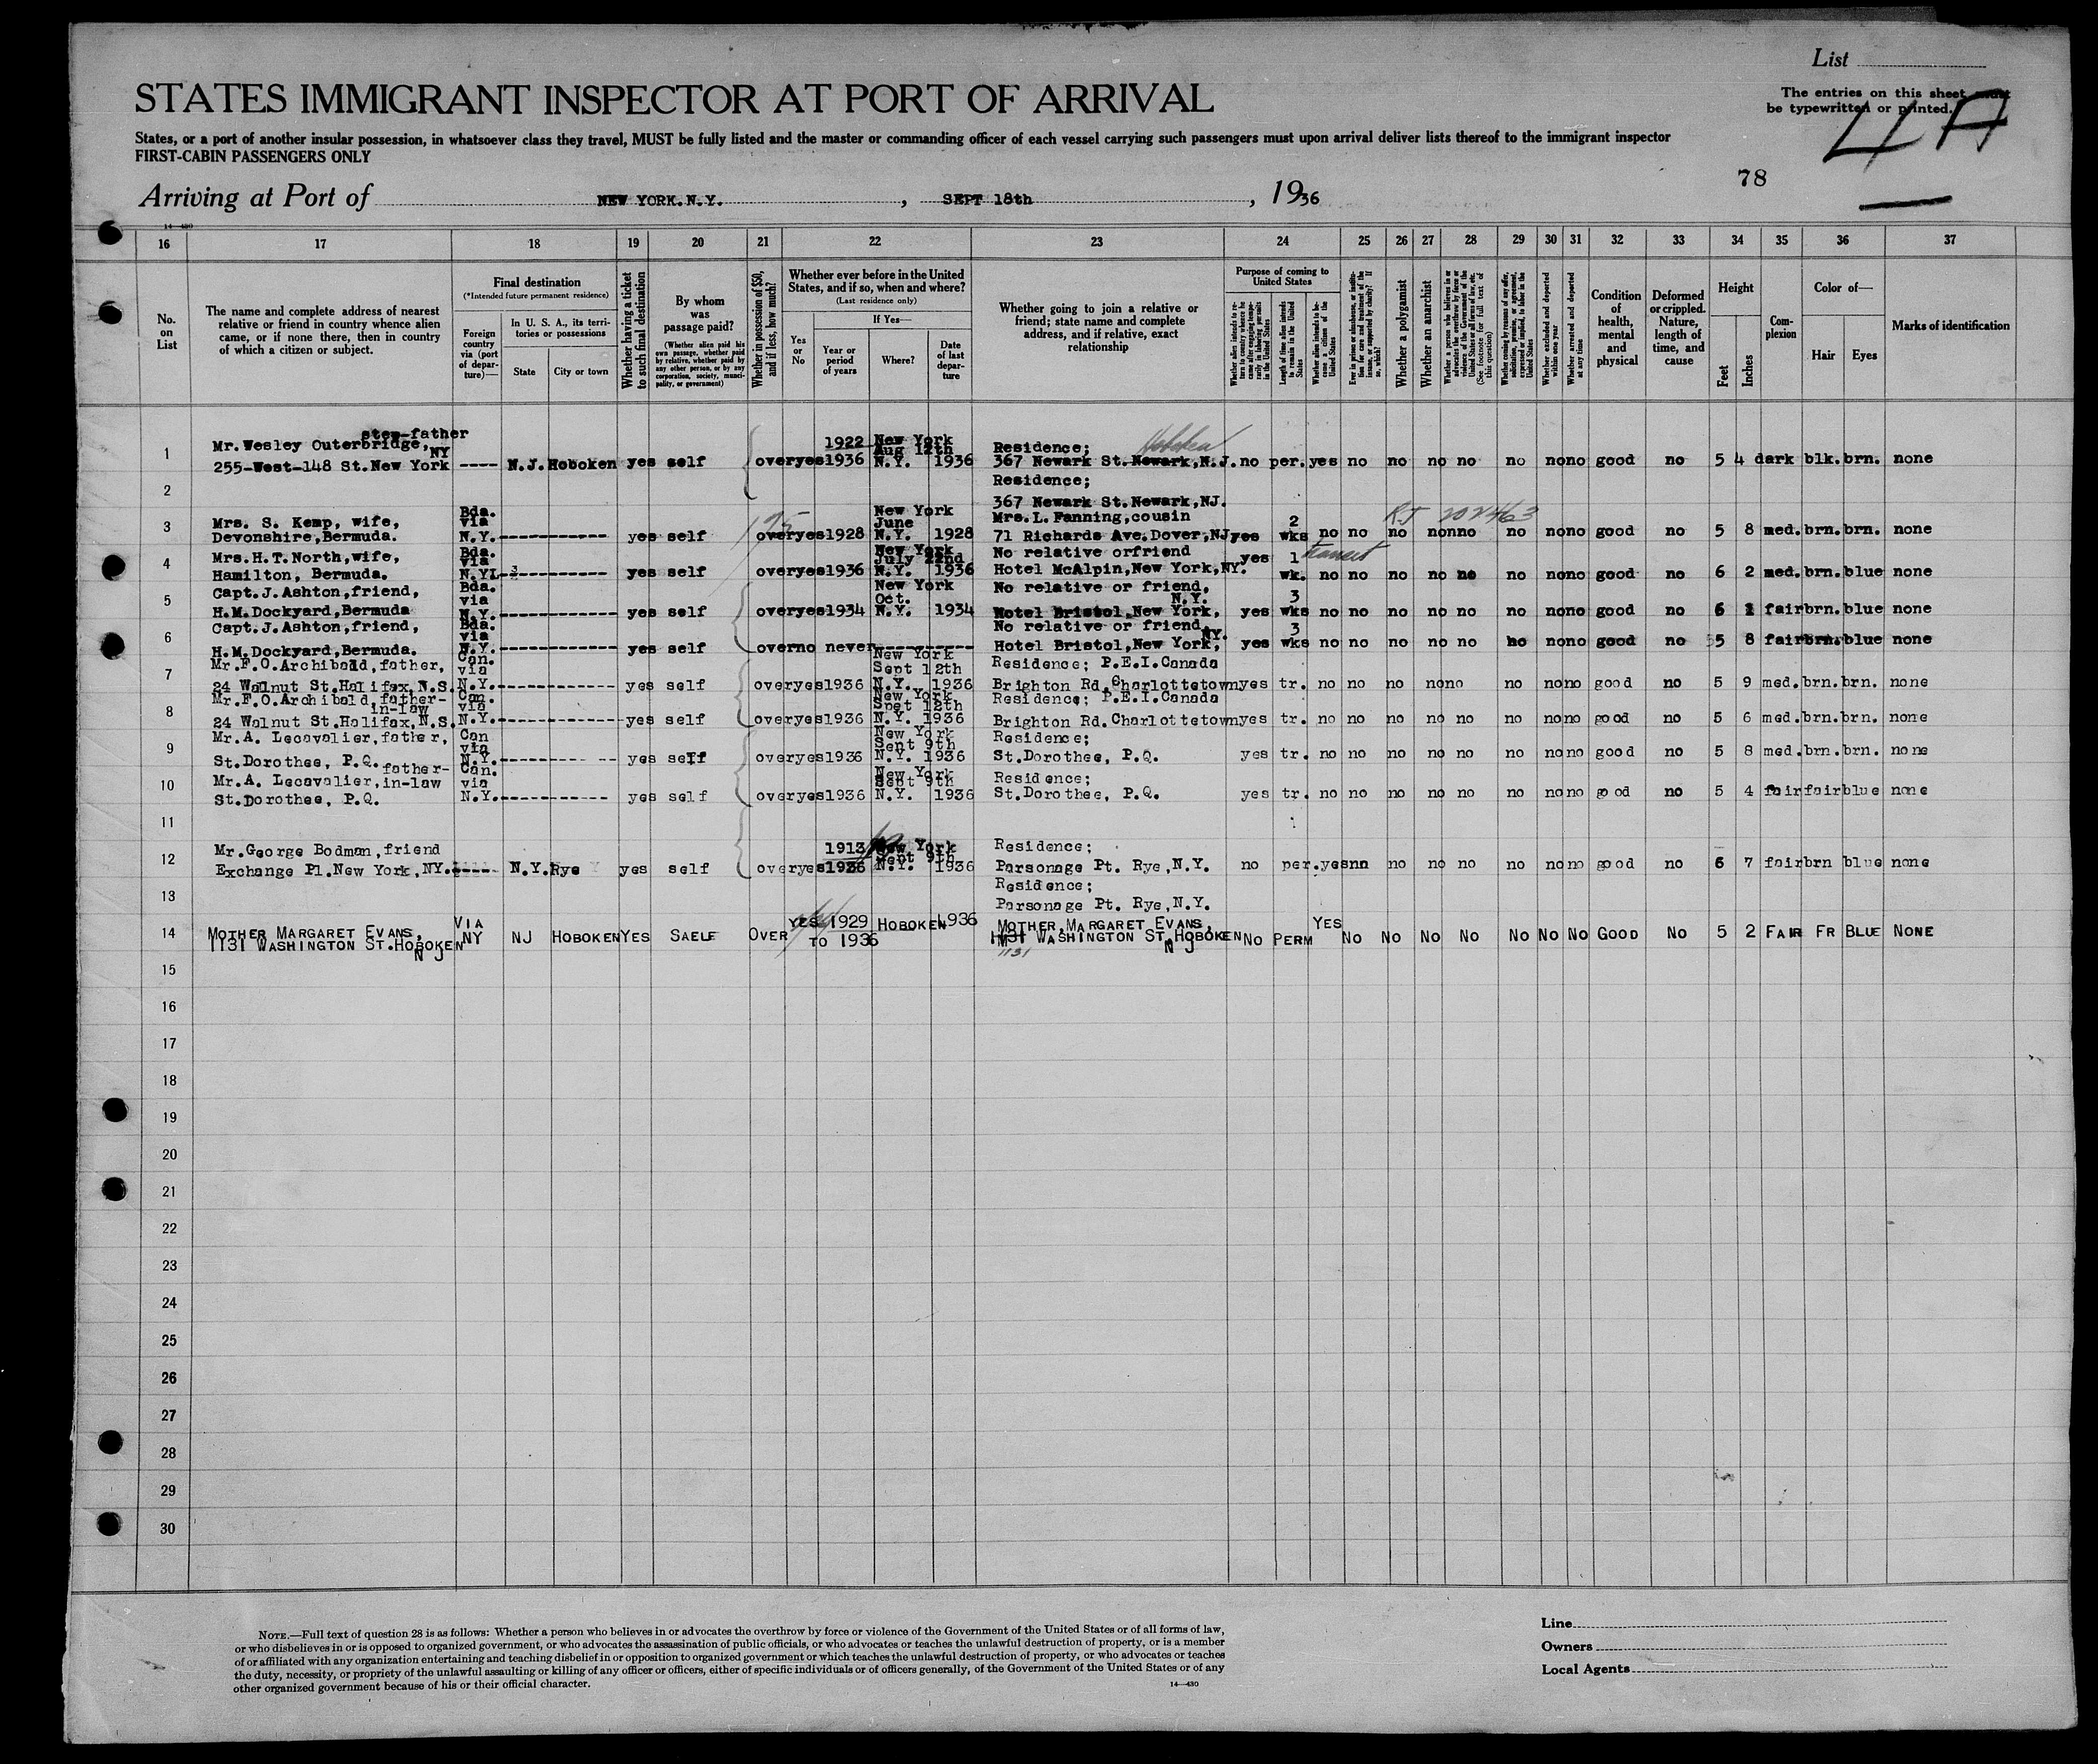 List
STATES IMMIGRANT INSPECTOR AT PORT OF ARRIVAL
The entries on this sheet must
be typewritten or printed.
4A
States, or a port of another insular possession, in whatsoever class they travel, MUST be fully listed and the master or commanding officer of each vessel carrying such passengers must upon arrival deliver lists thereof to the immigrant inspector
FIRST-CABIN PASSENGERS ONLY
78
Arriving at Port of NEW YORK.N.Y. , SEPT 18th , 1936
14—430
16 17 18 19 20 21 22 23 24 25 26 27 28 29 30 31 32 33 34 35 36 37
No. on List
The name and complete address of nearest relative or friend in country whence alien came, or if none there, then in country of which a citizen or subject.
Final destination
(*Intended future permanent residence)
Foreign country via (port of departure)—
In U. S. A., its territories or possessions
State
City or town
Whether having a ticket to such final destination
By whom was passage paid?
(Whether alien paid his own passage, whether paid by relative, whether paid by any other person, or by any corporation, society, municipality, or government)
Whether in possession of $50, and if less, how much?
Whether ever before in the United States, and if so, when and where?
(Last residence only)
If Yes—
Yes or No
Year or period of years
Where?
Date of last departure
Whether going to join a relative or friend; state name and complete address, and if relative, exact relationship
Purpose of coming to United States
Whether alien intends to return to country whence he came after engaging temporarily in laboring pursuits in the United States
Length of time alien intends to remain in the United States
Whether alien intends to become a citizen of the United States
Ever in prison or almshouse, or institution for care and treatment of the insane, or supported by charity? If so, which?
Whether a polygamist
Whether an anarchist
Whether a person who believes in or advocates the overthrow by force or violence of the Government of the United States or all forms of law, etc. (See footnote for full text of this question)
Whether coming by reason of any offer, solicitation, promise, or agreement, expressed or implied, to labor in the United States
Whether excluded and deported within one year
Whether arrested and deported at any time
Condition of health, mental and physical
Deformed or crippled. Nature, length of time, and cause
Height
Feet
Inches
Complexion
Color of—
Hair
Eyes
Marks of identification
step-father
1 Mr.Wesley Outerbridge, NY 1922 New York Aug 12th Residence; Hoboken
255-West-148 St.New York ---- N.J. Hoboken yes self over yes 1936 N.Y. 1936 367 Newark St.Newark,N.J. no per. yes no no no no no no no good no 5 4 dark blk. brn. none
2 Residence;
367 Newark St.Newark,NJ.
3 Mrs. S. Kemp, wife, Bda. via New York June Mrs.L.Fanning,cousin 2 RJ 202463
Devonshire,Bermuda. N.Y. ----------- yes self over yes 1928 N.Y. 1928 71 Richards Ave.Dover,NJ yes wks no no no no no no no no good no 5 8 med. brn. brn. none
4 Mrs.H.T.North,wife, Bda. via New York July 22nd No relative orfriend yes 1 transit
Hamilton, Bermuda. yes self over yes 1936 N.Y. 1936 Hotel McAlpin,New York,NY. wk. no no no no no no no no good no 6 2 med. brn. blue none
5 Capt.J.Ashton,friend, Bda. via New York Oct. No relative or friend, N.Y. 3
H.M.Dockyard,Bermuda N.Y. ----------- yes self over yes 1934 N.Y. 1934 Hotel Bristol,New York, yes wks no no no no no no no no good no 6 1 fair brn. blue none
6 Capt.J.Ashton,friend, Bda. via No relative or friend NY. 3
H.M.Dockyard,Bermuda. N.Y. ----------- yes self over no never---------- Hotel Bristol,New York, yes wks no no no no no no no no good no 5 8 fair brn. blue none
7 Mr.F.O.Archibald,father, Can. via New York Sept 12th Residence; P.E.I.Canada
24 Walnut St.Halifax,N.S. N.Y. ----------- yes self over yes 1936 N.Y. 1936 Brighton Rd.Charlottetown yes tr. no no no no no no no no good no 5 9 med. brn. brn. none
8 Mr.F.O.Archibald,father-in-law Can. via New York Spet 12th Residence; P.E.I.Canada
24 Walnut St.Halifax,N.S. N.Y. ----------- yes self over yes 1936 N.Y. 1936 Brighton Rd.Charlottetown yes tr. no no no no no no no no good no 5 6 med. brn. brn. none
9 Mr.A. Lecavalier,father, Can via New York Sept 9th Residence;
St.Dorothee, P.Q. N.Y. ----------- yes self over yes 1936 N.Y. 1936 St.Dorothee, P.Q. yes tr. no no no no no no no no good no 5 8 med. brn. brn. none
10 Mr.A. Lecavalier, father-in-law Can. via New York Sept 9th Residence;
St.Dorothee, P.Q. N.Y. ----------- yes self over yes 1936 N.Y. 1936 St.Dorothee, P.Q. yes tr. no no no no no no no no good no 5 4 fair fair blue none
11
12 Mr.George Bodman,friend 1913 New York Sept 9th Residence;
Exchange Pl.New York,NY. ---- N.Y. Rye yes self over yes 1936 N.Y. 1936 Parsonage Pt. Rye,N.Y. no per. yes nn no no no no no no good no 6 7 fair brn blue none
13 Residence;
Parsonage Pt. Rye,N.Y.
14 MOTHER MARGARET EVANS, VIA YES 1929 HOBOKEN 1936 MOTHER,MARGARET EVANS, YES
1131 WASHINGTON ST.HOBOKEN N J NY NJ HOBOKEN YES SAELF OVER TO 1936 1131 WASHINGTON ST.HOBOKEN N J NO PERM NO NO NO NO NO NO NO GOOD NO 5 2 FAIR FR BLUE NONE
1131
15
16
17
18
19
20
21
22
23
24
25
26
27
28
29
30
NOTE.—Full text of question 28 is as follows: Whether a person who believes in or advocates the overthrow by force or violence of the Government of the United States or of all forms of law,
or who disbelieves in or is opposed to organized government, or who advocates the assassination of public officials, or who advocates or teaches the unlawful destruction of property, or is a member
of or affiliated with any organization entertaining and teaching disbelief in or opposition to organized government or which teaches the unlawful destruction of property, or who advocates or teaches
the duty, necessity, or propriety of the unlawful assaulting or killing of any officer or officers, either of specific individuals or of officers generally, of the Government of the United States or of any
other organized government because of his or their official character.
14—430
Line
Owners
Local Agents